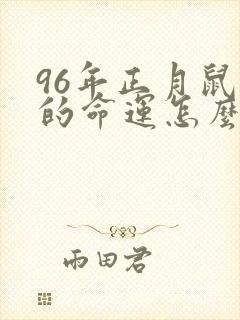 96年正月鼠
的命运怎麼
雨田君